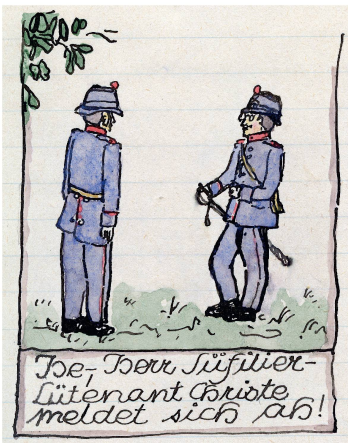 He, Herr Füfilier-
Lütenant Christe
meldet sich ab!